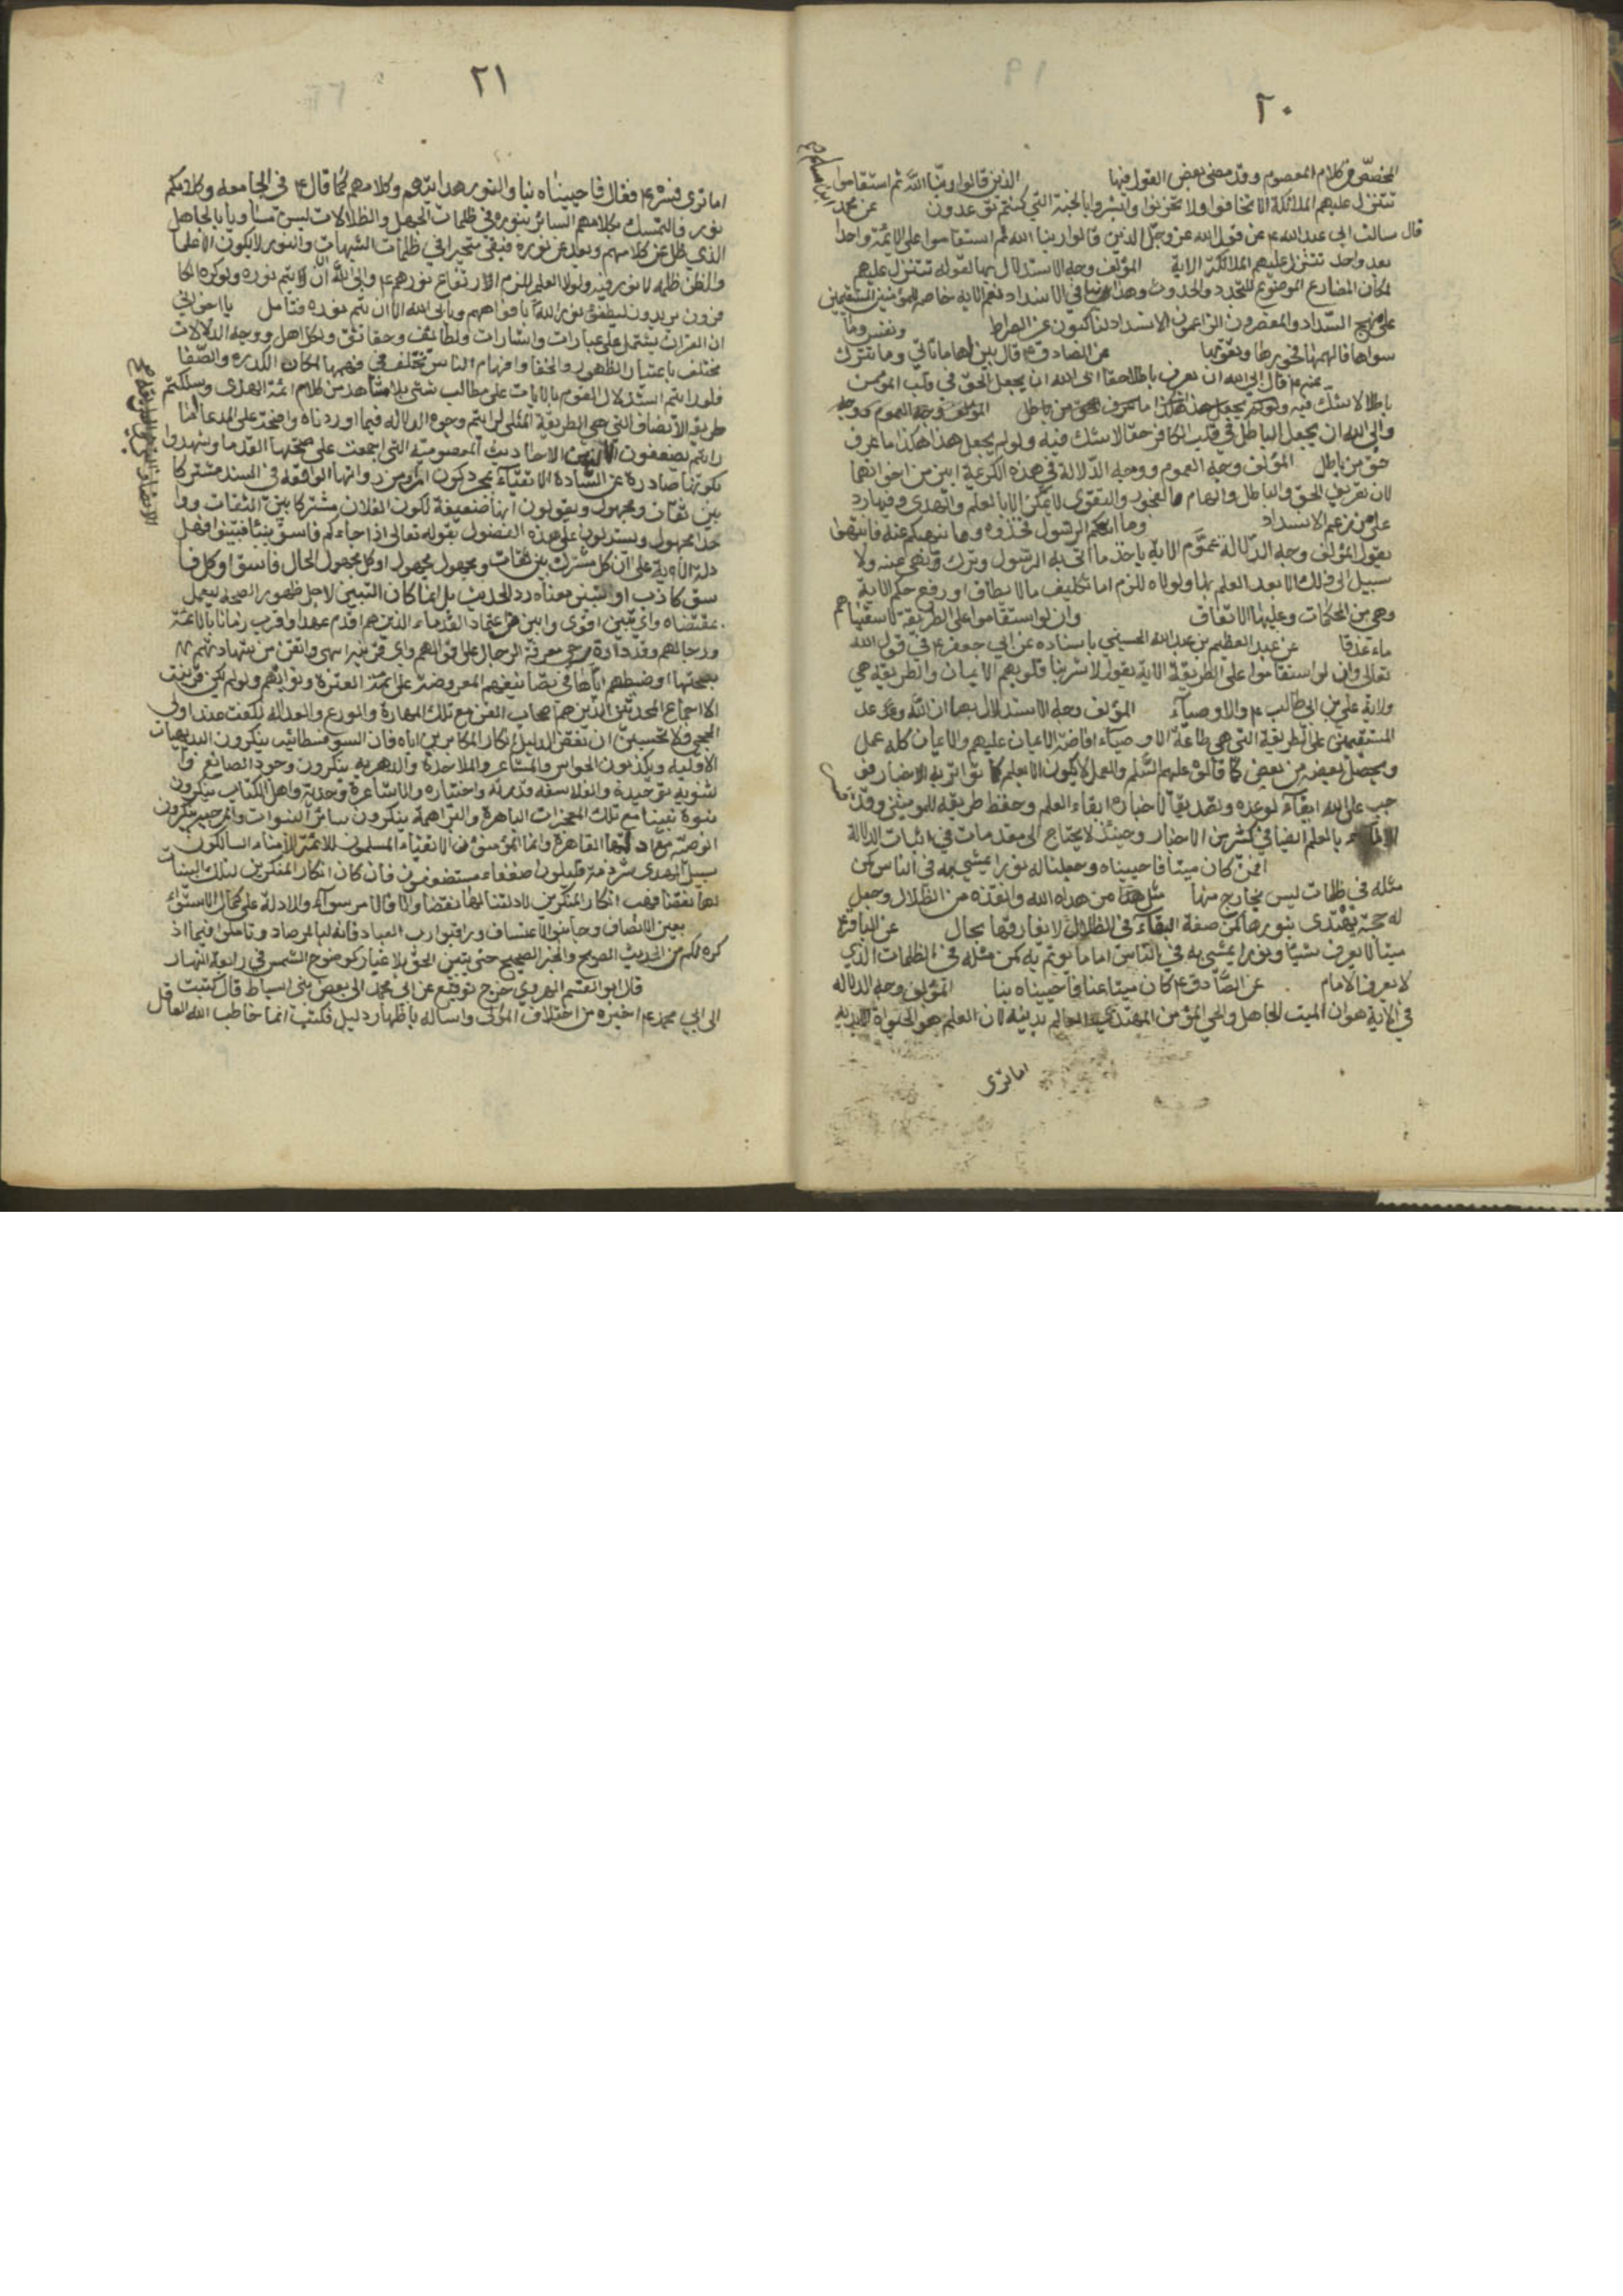 ٢٠
المخصص في كلام المعصوم وقد مضى بعض القول فيها الذين قالوا ربنا الله ثم استقاموا
تتنزل عليهم الملائكة الا تخافوا ولا تحزنوا وابشروا بالجنة التي كنتم توعدون عن محمد
بن مسلم
قال سالت ابي عبد الله ع عن قول الله عز وجل الذين قالوا ربنا الله ثم استقاموا على الائمة واحدا
بعد واحد تتنزل عليهم الملائكة الاية المؤلف وجه الاستدلال بها لقوله تتنزل عليهم
لمكان المضارع الموضوع للتجدد والحدوث وهذا ينافي الانسداد نعم الاية خاصة للمؤمنين المستقيمين
على نهج السداد والمعرضون الزاعمون الانسداد لناكبون عن الصراط ونفس وما
سواها فالهمها فجورها وتقويها عن الصادق ع قال بين لها ما تاتي وما تترك
عنه ع قال ابى الله ان يعرف باطلا حقا ابى الله ان يجعل الحق في قلب المؤمن
باطلا لا شك فيه ولو لم يجعل هذا هكذا ما عرف حق من باطل
وابى الله ان يجعل الباطل في قلب الكافر حقا لا شك فيه ولو لم يجعل هذا هكذا ما عرف
حق من باطل المؤلف وجه العموم ووجه الدلالة في هذه الكريمة ابين من اخواتها
لان تعريف الحق والباطل والهام الفجور والتقوى لا يمكن الا بالعلم والهدى وفيها رد
على من زعم الانسداد وما اتيكم الرسول فخذوه وما نهيكم عنه فانتهوا
يقول المؤلف وجه الدلالة عموم الاية ياخذ ما اتى به الرسول وترك ونهى عنه ولا
سبيل الى ذلك الا بعد العلم بها ولولاه للزم اما تكليف ما لا يطاق او رفع حكم الاية
وهي من المحكمات وعليها الاتفاق وان لو استقاموا على الطريقة لاسقيناهم
ماء غدقا عن عبد العظيم بن عبد الله الحسيني باسناده عن ابي جعفر ع في قول الله
تعالى وان لو استقاموا على الطريقة الاية يقول لاشربنا قلوبهم الايمان والطريقة هي
ولاية علي بن ابي طالب ع والاوصياء المؤلف وجه الاستدلال بها ان الله وعد
المستقيمين على الطريقة التي هي طاعة الاوصياء افاضة الايمان عليهم والايمان كله عمل
ويحصل بعضه من بعض كما قالوه عليهم السلم والعمل لا يكون الا بعلم كما تواتر به الاخبار فو
جب على الله ابقاء لوعده وتصديقا لاخباره ابقاء العلم وحفظ طريقه للمؤمنين وقد
بالعلم ايضا في كثير من الاخبار وحينئذ لا يحتاج الى مقدمات في اثبات الدلالة
افمن كان ميتا فاحييناه وجعلنا له نورا يمشي به في الناس كمن
مثله في ظلمات ليس بخارج منها مثل هذا من هداه الله وانقذه من الظلال وجعل
له حجة يهتدى بنورها كمن صفة البقاء في الظلال لا يفارقها بحال عن الباقر ع
ميتا لا يعرف شيئا ونورا يمشي به في الناس اماما يوتم به كمن مثله في الظلمات الذي
لا يعرف الامام عن الصادق ع كان ميتا عنا فاحييناه بنا المؤلف وجه الدلاله
في الاية هو ان الميت الجاهل والحي المؤمن المهتدي العالم بدينه لان العلم هو الحيواة الابدية
اما ترى
٢١
اما ترى فسره ع فقال فاحييناه بنا والنور هدايتهم وكلامهم كما قال ع في الجامعه وكلامكم
نور فالتمسك بكلامهم السائر بنوره في ظلمات الجهل والظلالات ليس متساويا بالجاهل
الذي ظل عن كلامهم وبعد عن نوره فبقى متحيرا في ظلمات الشبهات والنور لا يكون الا علما
والظن ظلمه لا نور فيه ولولا العلم للزم الارتفاع نورهم ع وابى الله الا ان يتم نوره ولو كره الكا
فرون يريدون ليطفؤا نور الله بافواههم ويابى الله الا ان يتم نوره فتامل يا اخواني
ان القران يشتمل على عبارات واشارات ولطائف وحقائق ولكل اهل ووجه الدلالات
مختلف باعتبار الظهور والخفا وافهام الناس تختلف في فهمها لمكان الكدره والصفا
فلو رايتم استدلال القوم بالايات على مطالب شتى بلا شاهد من كلام ائمة الهدى وسلكتم
طريقه الانصاف التي هي الطريقة المثلى لرايتم وجوه الدلاله فيما اوردناه واضحة على المدعا اما
رايتم يضعفون الاحاديث المعصوميه التي اجمعت على صحتها القدما وشهدوا
بكونها صادرة عن السادة الاتقياء بمجرد كون الراوي من وانها الواقعه في السند مشتركا
بين ثقات ومجهول ويقولون انها ضعيفة لكون الفلان مشتركا بين الثقات ووا
حد مجهول ويستدلون على هذه الفضول بقوله تعالى اذا جاءكم فاسق بنبا فتبينوا فهل
دلت الاية على ان كل مشترك بين ثقات ومجهول مجهول او كل مجهول الحال فاسق او كل فا
سق كاذب او التبين معناه رد الحديث بل انما كان التبين لاجل ظهور الصحه ليعمل
بمقتضاه واي تبين اقوى وابين من اعتماد القدماء الذين هم اقدم عهدا واقرب زمانا بالائمة
ورجالهم وقد دارة رحى معرفة الرجال على اقوالهم واي قرينه اسهى واتقن من شهادتهم
بصحتها وضبطهم اياها في تصانيفهم المعروضة على ائمة العترة ونوابهم ولو لم تكن قرينة
الا اجماع المحدثين الذين هم اصحاب الفن مع تلك المهارة والورع والعدالة لكفت عند اولي
الحجى فلا تحسبن ان ينقض الدليل انكار المكابرين اياه فان السوفسطائيه ينكرون البديهيات
الاوليه ويكذبون الحواس والمشاعر والملاحدة والدهريه ينكرون وجود الصانع وا
لثنويه توحيدة والفلاسفه قدرته واختياره والاشاعرة وحدته واهل الكتاب ينكرون
نبوة نبينا مع تلك المعجزات الباهرة والبراهمة ينكرون سائر النبوات
القاهرة وانما المؤمنون الاتقياء المسلمون للائمة الامناء السالكون
سبيل الهدى شرذمة قليلون ضعفاء مستضعفون فان كان انكار المنكرين لتلك البينات
لها نقضا فهب انكار المنكرين لادلتنا لها نقضا والا فالامر سواء والادلة على كمال الاستواء
بعين الانصاف وجانبوا الاعتساف وراقبوا رب العباد فانه لبالمرصاد وتاملوا فيما اذ
كره لكم من الحديث الصريح والخبر الصحيح حتى يتبين الحق بلا غبار كوضوح الشمس في رابعة النهار
قال ابو القسيم الهروي خرج توقيع عن ابي محمد الى بعض بني اسباط قال كتبت
الى ابي محمد ع اخبره من اختلاف الموالى واساله باظهار دليل فكتب انما خاطب الله العاقل